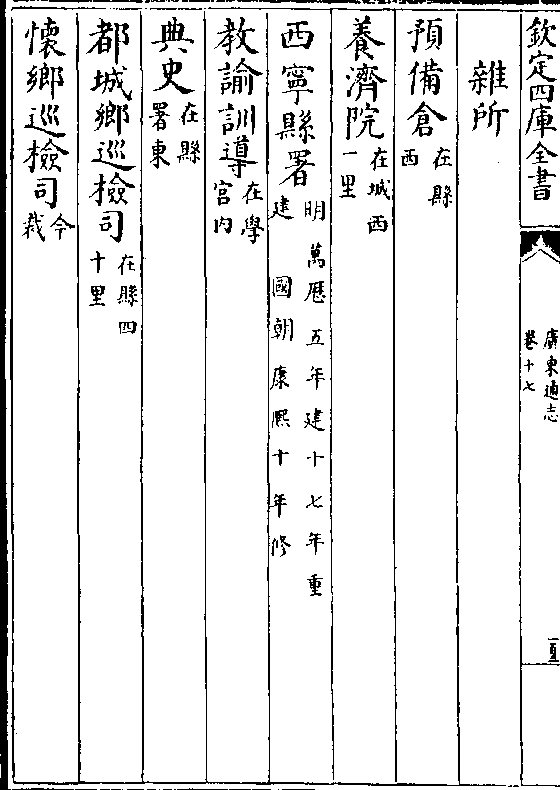 欽定四庫全書
廣東通志
卷十七
雜所
預備倉在縣
西
養濟院在城西
一里
西寧縣署明萬歷五年建十七年重
建 國朝康熙十年修
教諭訓導在學
宮內
典史在縣
署東
都城鄉巡檢司在縣四
十里
懷鄉巡檢司今
裁